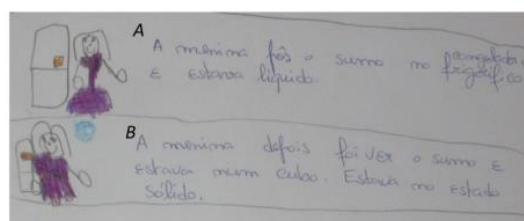 A
A menina pôs o sumo no congelador
E estava líquido. frigorífico
B
A menina depois foi ver o sumo e
estava num cubo. Estava no estado
sólido.